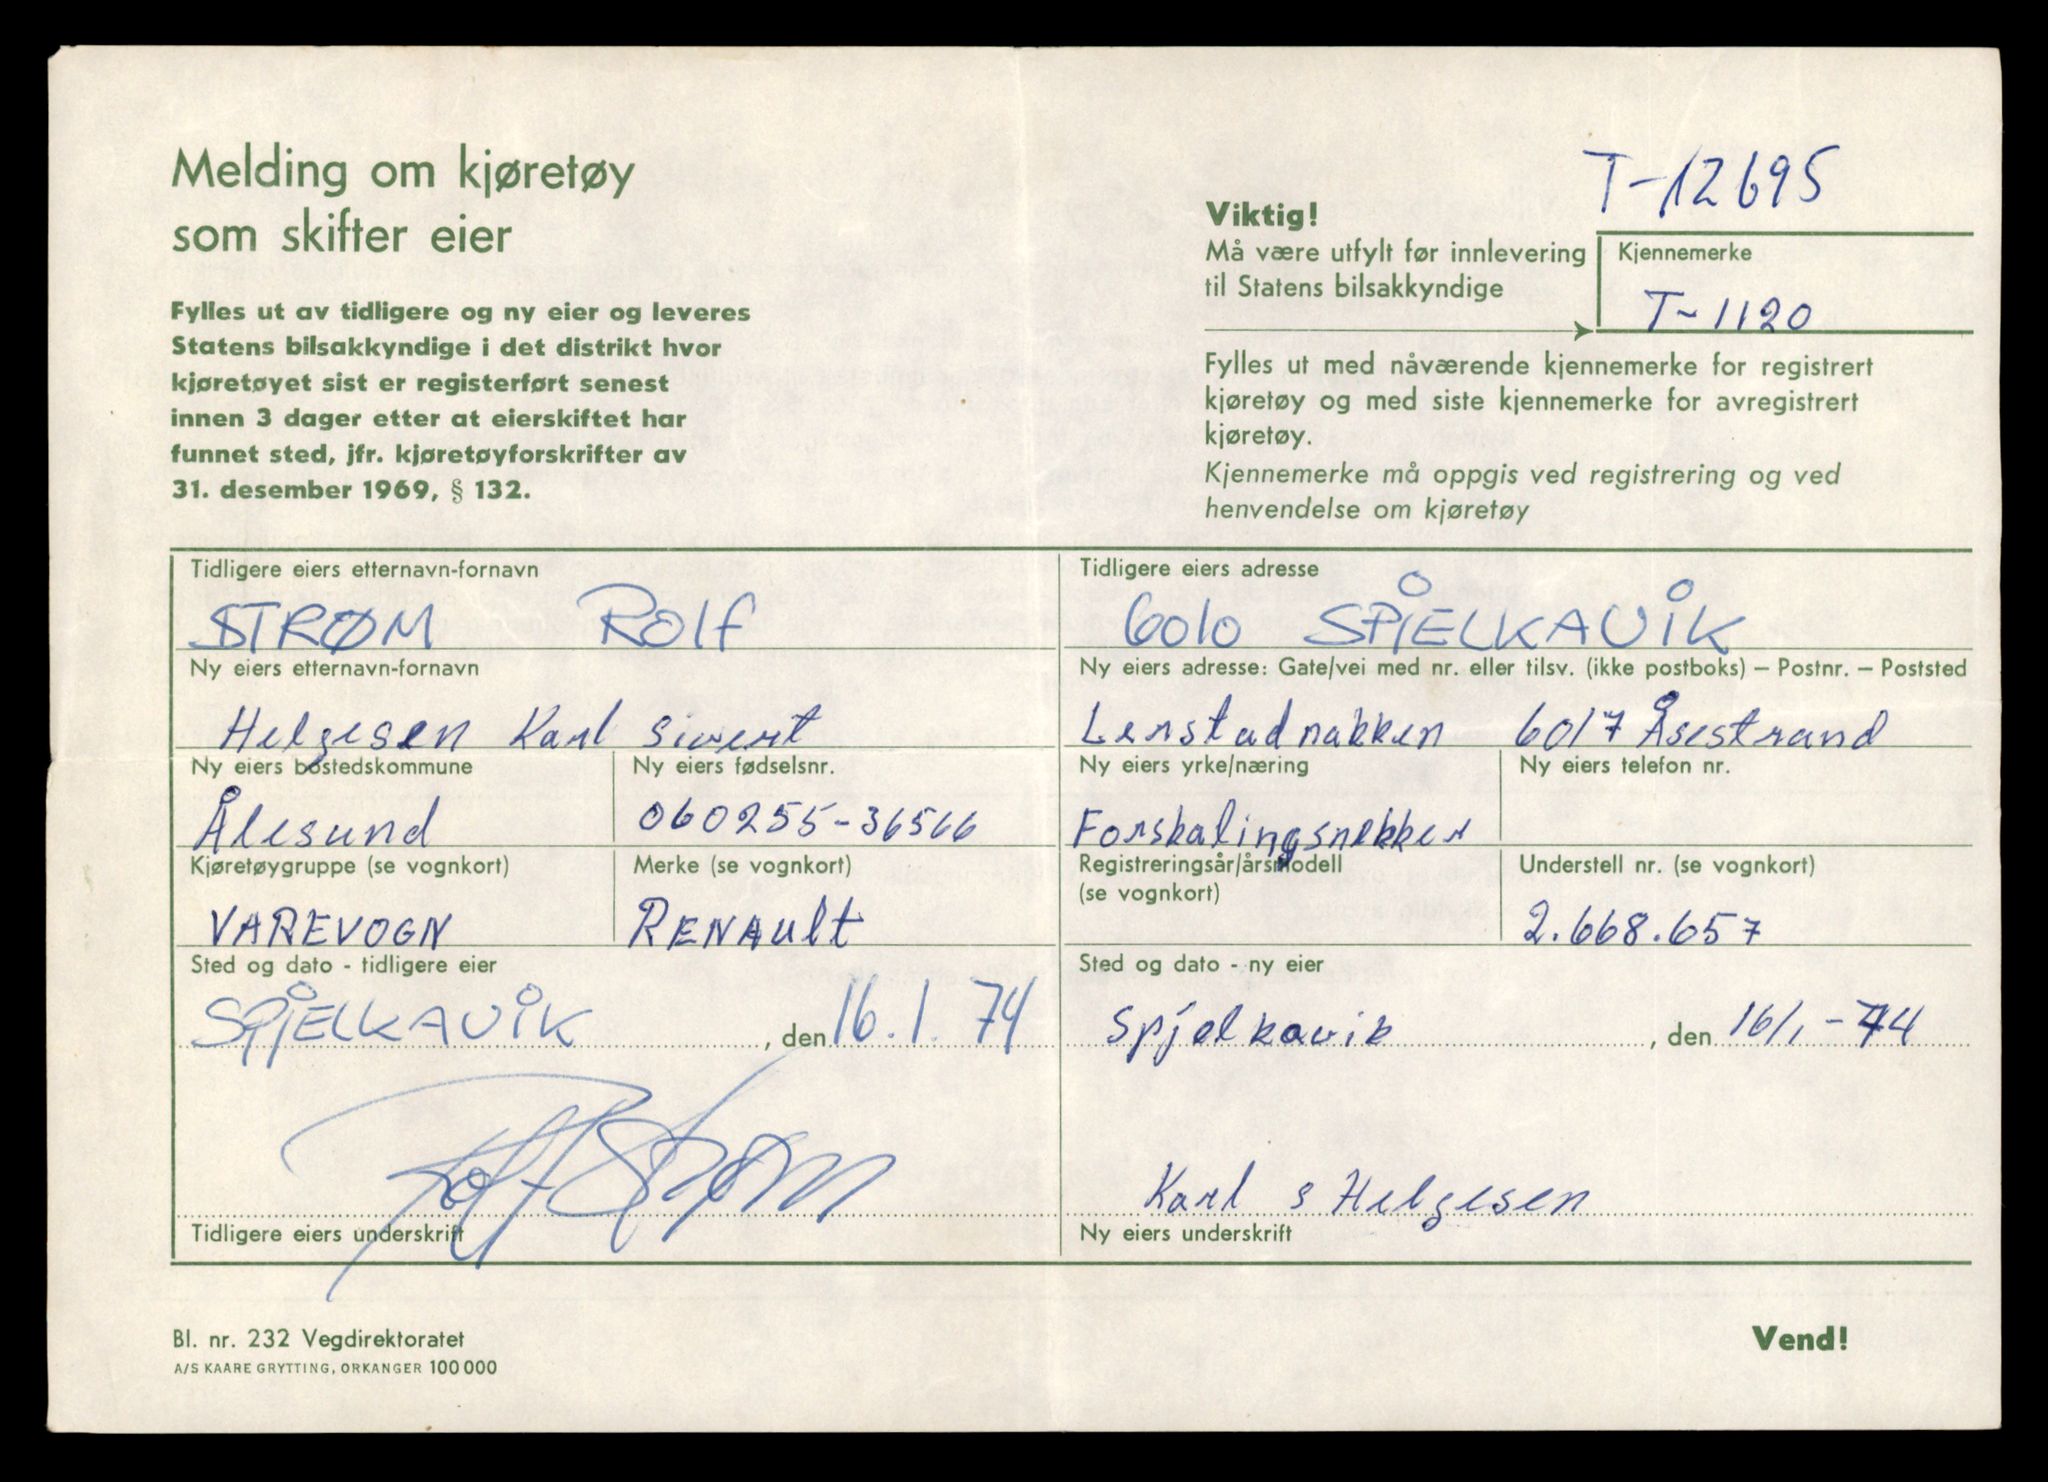 Melding om kjøretøy
som skifter eier
Fylles ut av tidligere og ny eier og leveres
Statens bilsakkyndige i det distrikt hvor
kjøretøyet sist er registerført senest
innen 3 dager etter at eierskiftet har
funnet sted, jfr. kjøretøyforskrifter av
31. desember 1969, § 132.
T-12695
Viktig!
Må være utfylt før innlevering
til Statens bilsakkyndige
Kjennemerke
T-1120
Fylles ut med nåværende kjennemerke for registrert
kjøretøy og med siste kjennemerke for avregistrert
kjøretøy.
Kjennemerke må oppgis ved registrering og ved
henvendelse om kjøretøy
Tidligere eiers etternavn-fornavn
STRØM Rolf
Tidligere eiers adresse
6010 SPJELKAVIK
Ny eiers etternavn-fornavn
Helgesen Karl Sivert
Ny eiers adresse: Gate/vei med nr. eller tilsv. (ikke postboks) – Postnr. – Poststed
Lerstadnakken 6017 Åsestrand
Ny eiers bostedskommune
Ålesund
Ny eiers fødselsnr.
060255-36566
Ny eiers yrke/næring
Forskalingsnekker
Ny eiers telefon nr.
Kjøretøygruppe (se vognkort)
VAREVOGN
Merke (se vognkort)
RENAULT
Registreringsår/årsmodell
(se vognkort)
Understell nr. (se vognkort)
2.668.657
Sted og dato - tidligere eier
SPJELKAVIK, den 16.1.74
Sted og dato - ny eier
Spjelkavik, den 16/1-74
Rolf Strøm
Tidligere eiers underskrift
Karl S Helgesen
Ny eiers underskrift
Bl. nr. 232 Vegdirektoratet
A/S KAARE GRYTTING, ORKANGER 100 000
Vend!